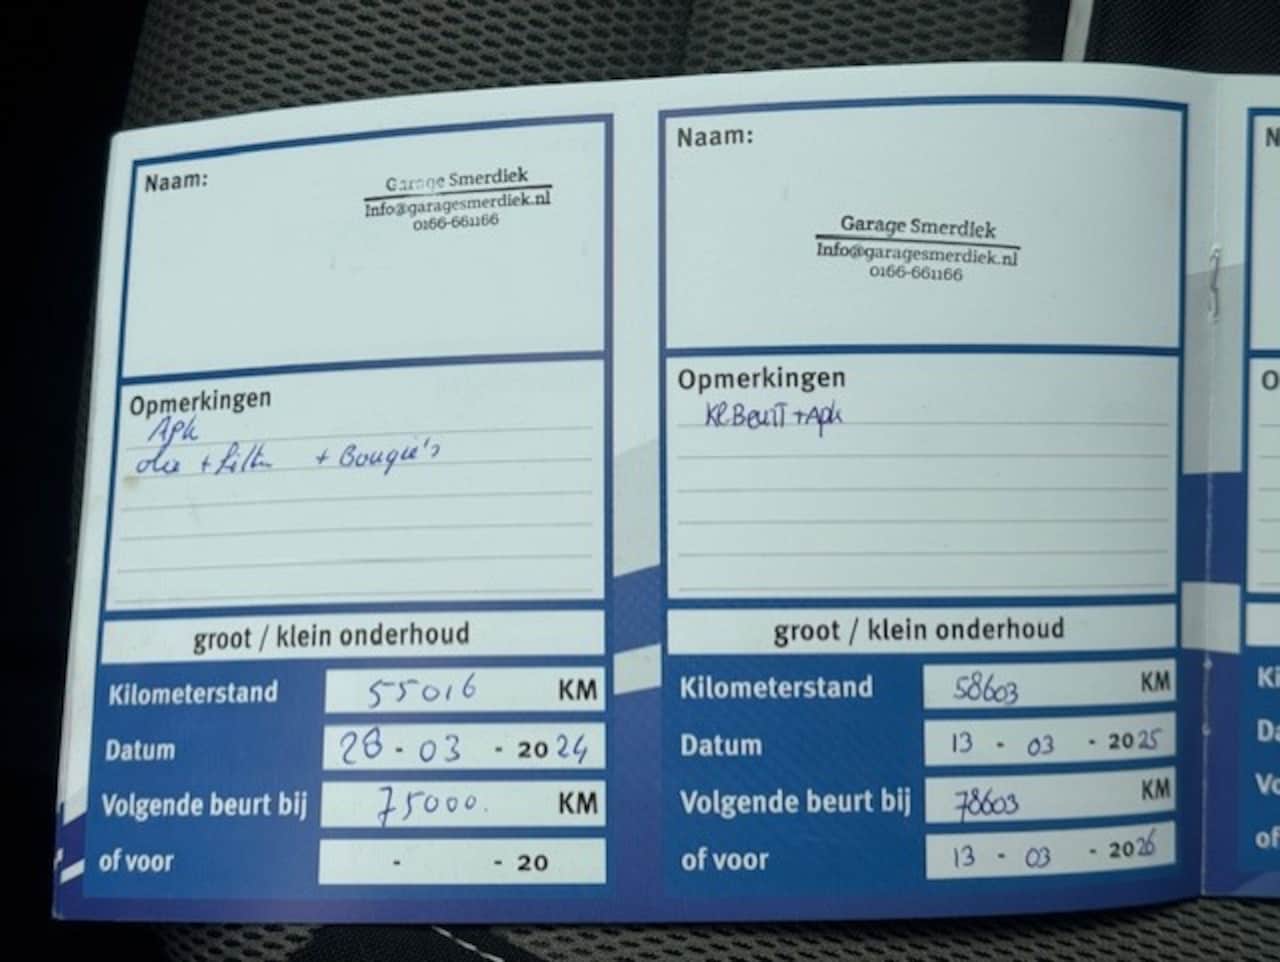 Naam:
Garage Smerdiek
Info@garagesmerdiek.nl
0166-661166
Opmerkingen
Apk
olie + filter + Bougie's
groot / klein onderhoud
Kilometerstand 55016 KM
Datum 28 - 03 - 2024
Volgende beurt bij 75000. KM
of voor - - 20
Naam:
Garage Smerdiek
Info@garagesmerdiek.nl
0166-661166
Opmerkingen
Kl Beurt + Apk
groot / klein onderhoud
Kilometerstand 58603 KM
Datum 13 - 03 - 2025
Volgende beurt bij 78603 KM
of voor 13 - 03 - 2026
N
O
Ki
Da
Vo
of